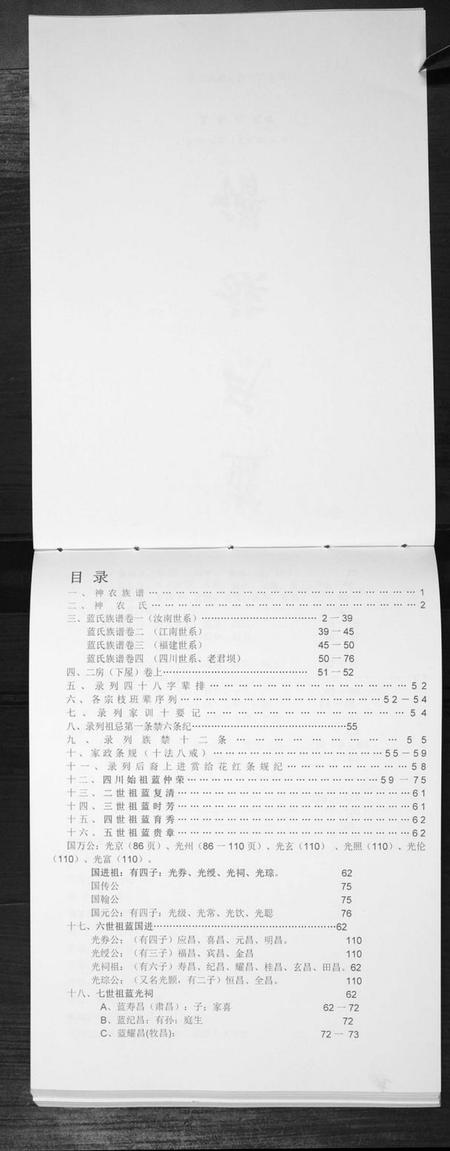 目录
一、神农族谱………………………………………………1
二、神农氏………………………………………………2
三、蓝氏族谱卷一（汝南世系）………………………………2一39
蓝氏族谱卷二（江南世系）39一45
蓝氏族谱卷三（福建世系）45一50
蓝氏族谱卷四（四川世系、老君坝）50一76
四、二房（下屋）卷上………………………………………51一52
五、录列四十八字辈排………………………………52
六、各宗枝班辈序列………………………………52一54
七、录列家训十要记………………………………54
八、录列祖忌第一条禁六条纪………………………………55
九、录列族禁十二条………………………………55
十、家政条规（十法八戒）………………………………55一59
十一、录列后裔上进赏给花红条规纪………………………58
十二、四川始祖蓝仲荣………………………………59一75
十三、二世祖蓝复清………………………………61
十四、三世祖蓝时芳………………………………61
十五、四世祖蓝育秀………………………………62
十六、五世祖蓝贵章………………………………62
国万公：光京（86页）、光州（86一110页）、光玄（110）、光照（110）、光伦
（110）、光富（110）。
国进祖：有四子：光券、光绶、光祠、光琮。62
国传公75
国翰公75
国元公：有四子：光级、光常、光饮、光聪76
十七、六世祖蓝国进………………………………62
光券公：（有四子）应昌、喜昌、元昌、明昌。110
光绶公：（有三子）福昌、宾昌、金昌110
光祠祖：（有六子）寿昌、纪昌、耀昌、桂昌、玄昌、田昌。62
光琮公：（又名光颢，有二子）恒昌、全昌。110
十八、七世祖蓝光祠62
A、蓝寿昌（肃昌）：子：家喜62一72
B、蓝纪昌：有孙：庭生72
C、蓝耀昌(牧昌)：72一73